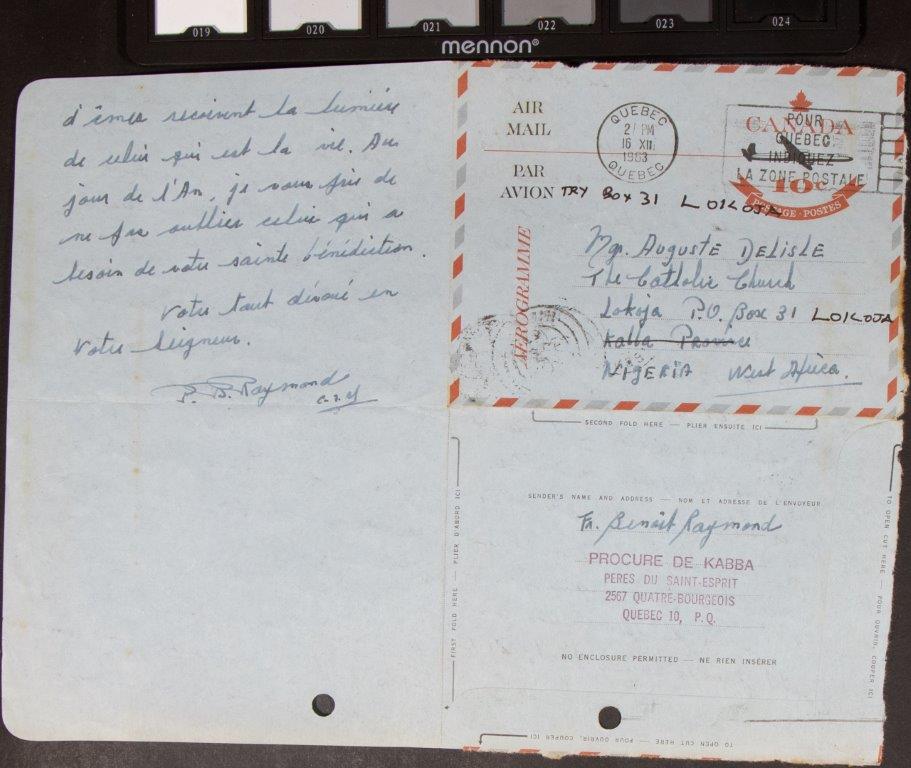 019 020 021 022 023 024
mennon®
d'âmes reçoivent la lumière
de celui qui est la vie. Au
jour de l'An, je vous prie de
ne pas oublier celui qui a
besoin de votre sainte bénédiction.
Votre tout dévoué en
Notre Seigneur.
P. B. Raymond
c.s.sp
AIR
MAIL
PAR
AVION
AÉROGRAMME
QUEBEC
21 PM
16 XII
1963
QUEBEC
POUR
QUEBEC
INDIQUEZ
LA ZONE POSTALE
CANADA
10c
POSTAGE·POSTES
TRY Box 31 LOKOJA
Mgr. Auguste DELISLE
The Catholic Church
Lokoja P.O. Box 31 LOKOJA
Kabba Province
NIGERIA West Africa.
SECOND FOLD HERE — PLIER ENSUITE ICI
SENDER'S NAME AND ADDRESS — NOM ET ADRESSE DE L'ENVOYEUR
Fr. Benoît Raymond
PROCURE DE KABBA
PERES DU SAINT-ESPRIT
2567 QUATRE-BOURGEOIS
QUEBEC 10, P.Q.
NO ENCLOSURE PERMITTED — NE RIEN INSÉRER
FIRST FOLD HERE — PLIER D'ABORD ICI
TO OPEN CUT HERE — POUR OUVRIR, COUPER ICI
TO OPEN CUT HERE — POUR OUVRIR, COUPER ICI